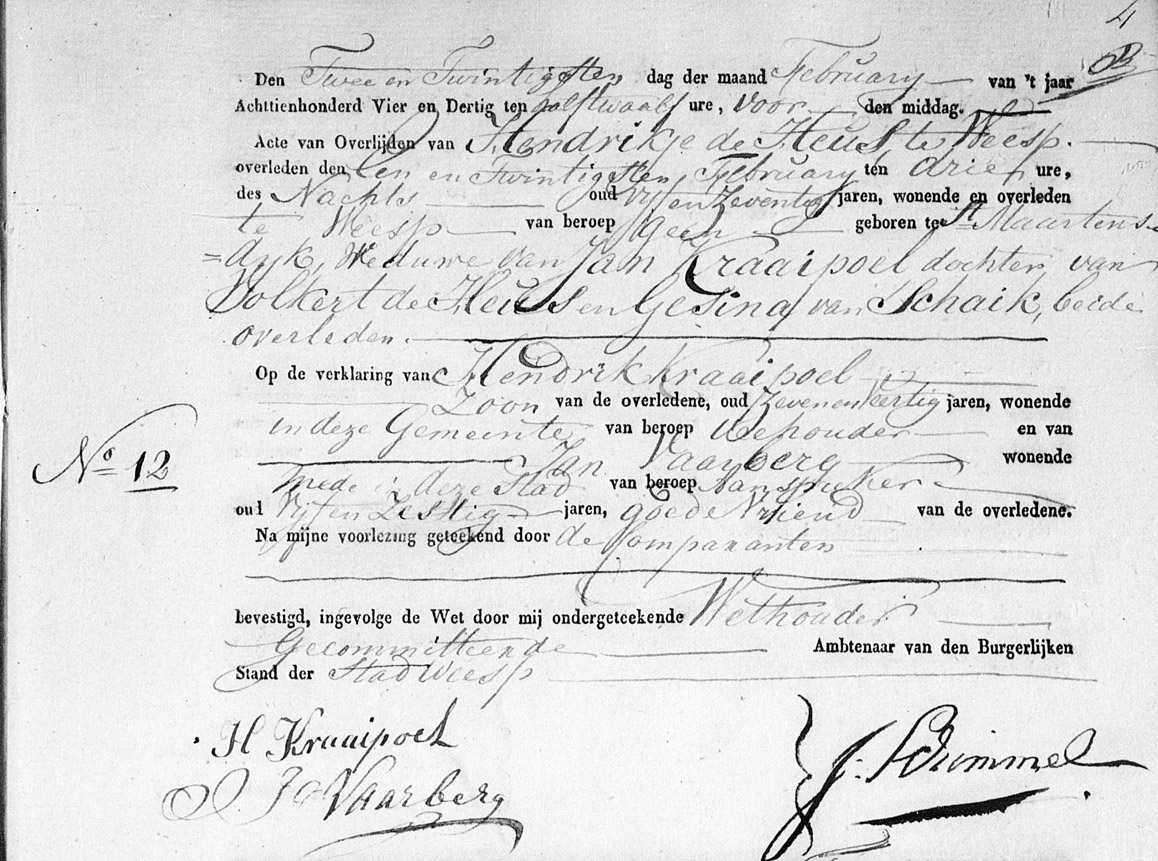 4
Den Twee en Twintigsten dag der maand February van 't jaar
Achttienhonderd Vier en Dertig ten half twaalf ure, Voor den middag.
Acte van Overlijden van Hendrikje de Heus te Weesp.
overleden den Een en Twintigsten February ten drie ure,
des Nachts oud Vijf en Zeventig jaren, wonende en overleden
te Weesp van beroep geen geboren te St Maartens-
=dijk, Weduwe van Jan Kraaipoel dochter van
Volkert de Heus en Gesina van Schaik, beide
overleden.
Op de verklaring van Hendrik Kraaipoel
Zoon van de overledene, oud Zevenen Veertig jaren, wonende
in deze Gemeente van beroep Veehouder en van
Jan Vaarberg wonende
No 12
mede in deze Stad van beroep Aanspreker
oud Vijf en Zestig jaren, goede Vriend van de overledene.
Na mijne voorlezing geteekend door de Comparanten
bevestigd, ingevolge de Wet door mij ondergeteekende Wethouder
Gecommitteerde Ambtenaar van den Burgerlijken
Stand der Stad Weesp
H Kraaipoel
J Vaarberg